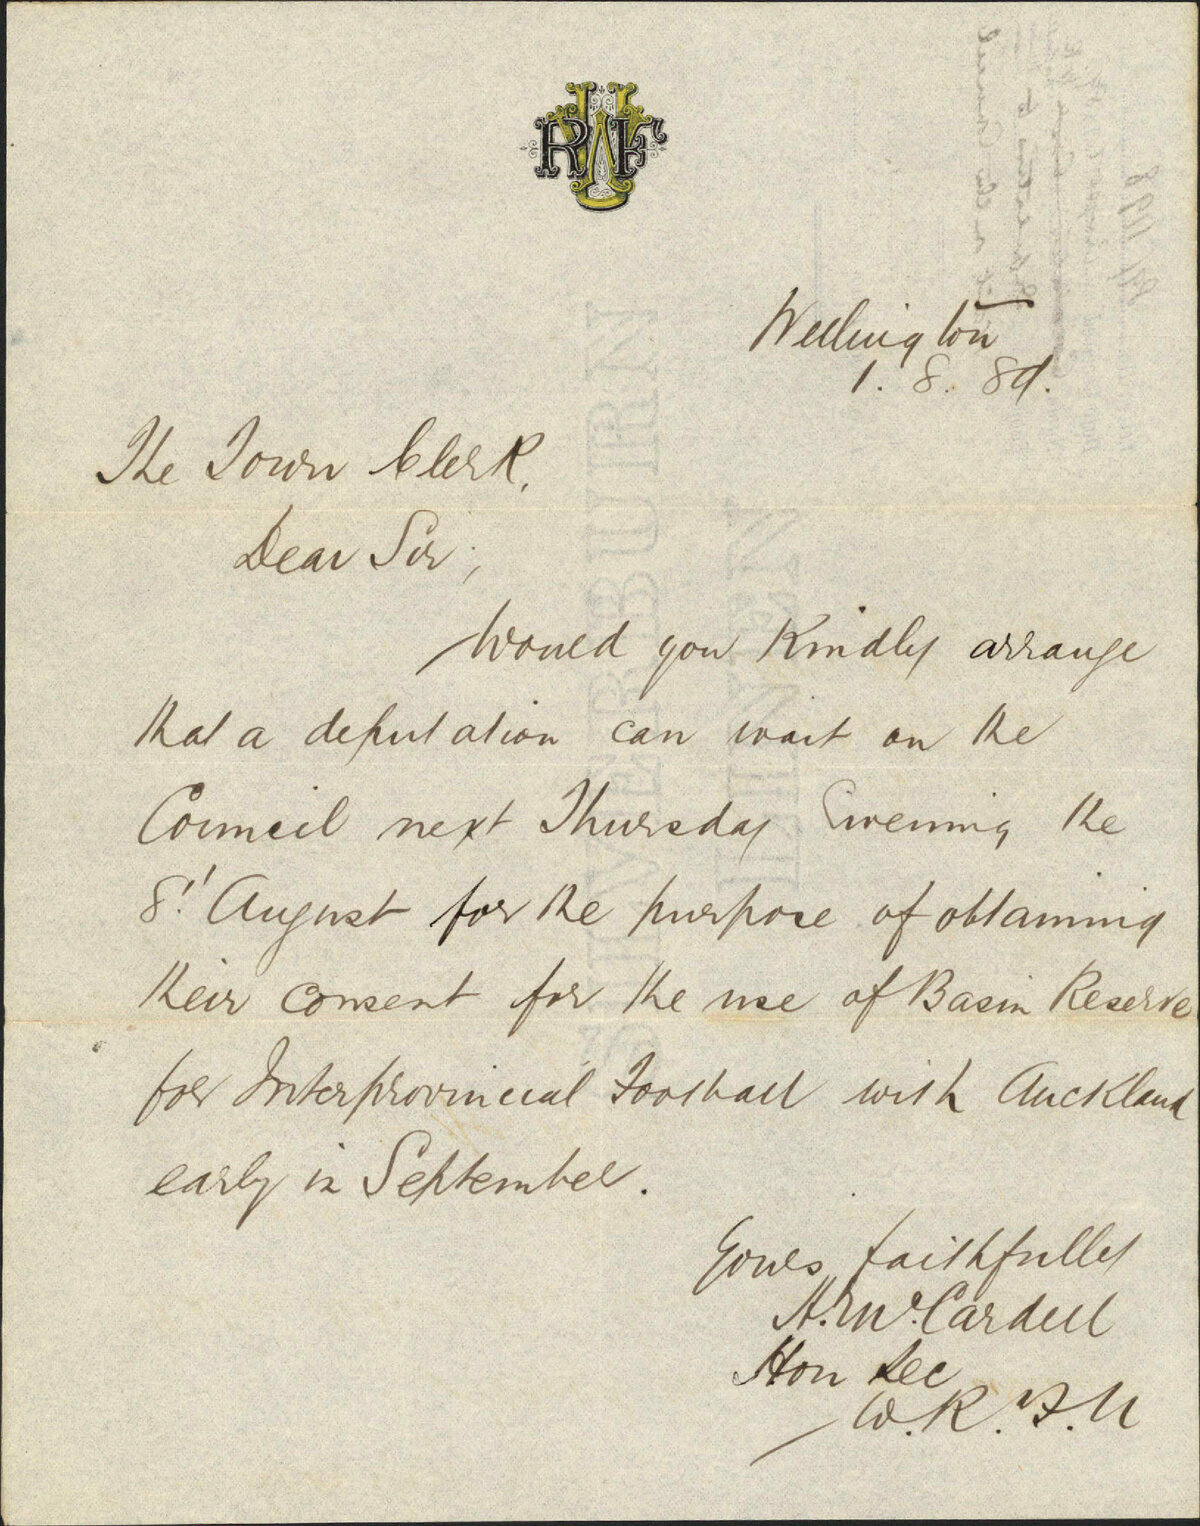 WRFU
Wellington
1. 8. 89.
The Town Clerk,
Dear Sir;
Would you Kindly arrange
that a deputation can wait on the
Council next Thursday Evening the
8th August for the purpose of obtaining
their consent for the use of Basin Reserve
for Interprovincial Football with Auckland
early in September.
Yours faithfully
McCardell
Hon Sec
W. R. F. U